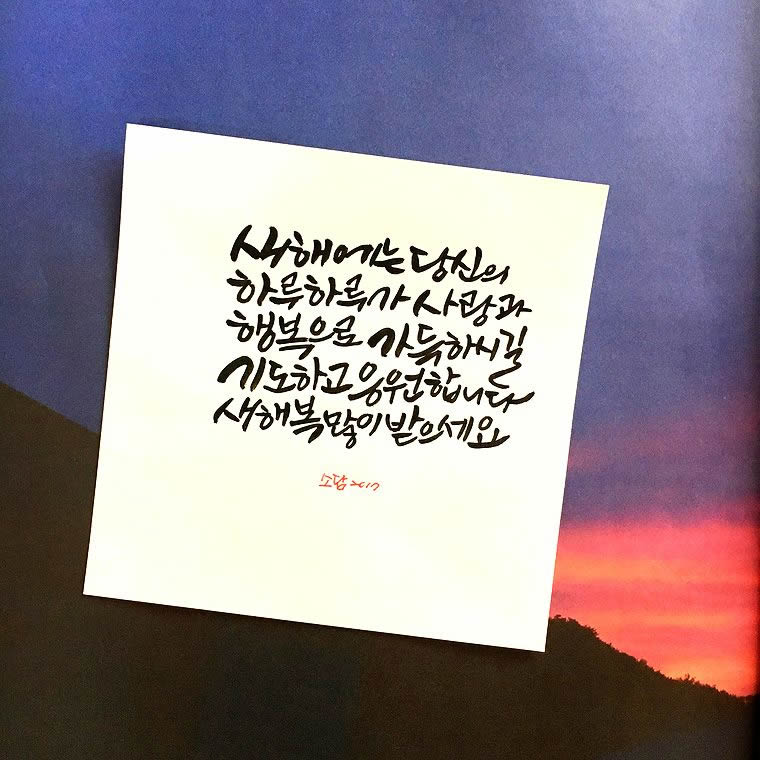 새해에는 당신의
하루하루가 사랑과
행복으로 가득하시길
기도하고 응원합니다
새해 복 많이 받으세요
소담 2017